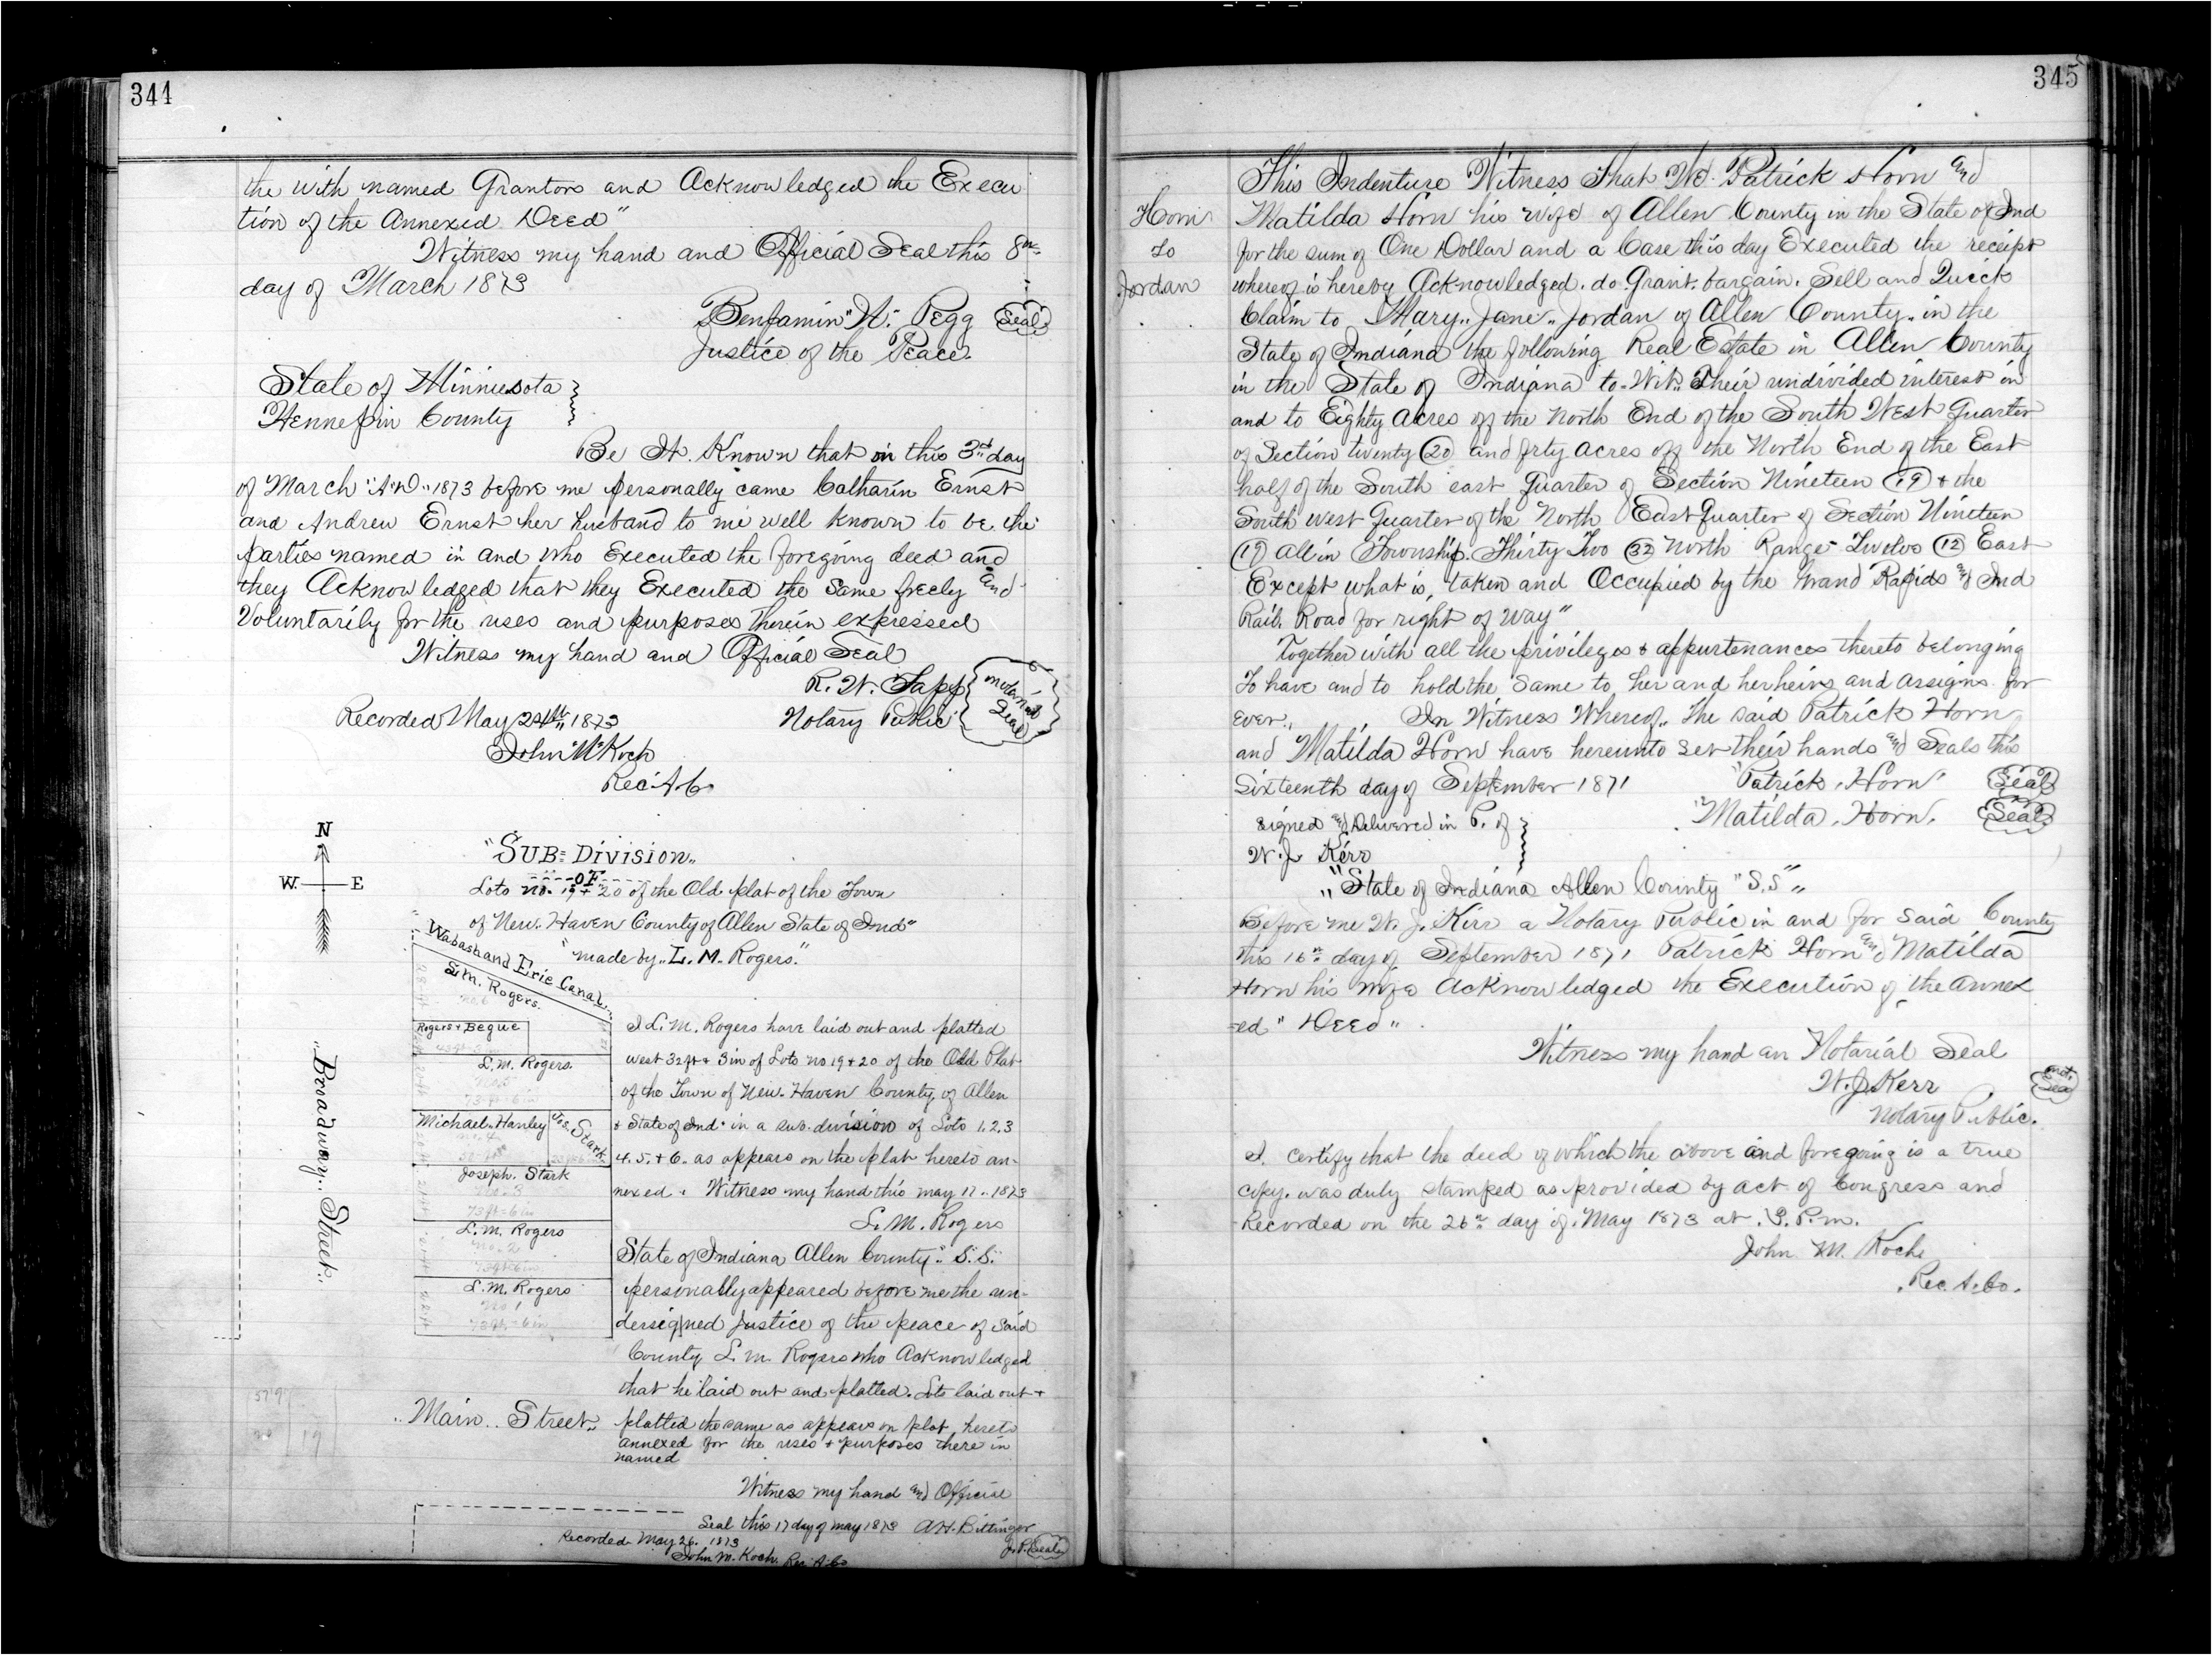 344
the with named Grantors and Acknowledged the Execu
tion of the Annexed Deed"
Witness my hand and Official Seal this 8th
day of March 1873
Benjamin W. Pegg Seal
Justice of the Peace.
State of Minnesota
Hennepin County
Be It Known that on this 3rd day
of March "A.D." 1873 before me personally came Catharin Ernst
and Andrew Ernst her husband to me well known to be the
parties named in and who Executed the foregoing deed and
they Acknowledged that they Executed the same freely and
Voluntarily for the uses and purposes therein expressed
Witness my hand and Official Seal
R. W. Sapp
Notary Public
Notarial Seal
Recorded May 24th 1873
John M Koch
Rec. A. C.
N
W E
"SUB=Division"
OF
Lots no. 19 + 20 of the Old plat of the Town
of New Haven County of Allen State of Ind"
"made by" L. M. Rogers."
Wabash and Erie Canal
L. M. Rogers.
no. 6
Rogers + Begue
L. M. Rogers.
no. 5
73 ft = 6 in
Michael Hanley
Jos. Stark
no. 4
Joseph. Stark
no. 3
73 ft = 6 in
L. M. Rogers
no. 2
73 ft = 6 in
L. M. Rogers
no 1
73 ft = 6 in
"Broadway" Street"
"Main" Street"
19
I L. M. Rogers have laid out and platted
west 32 ft + 3 in of Lots no 19 + 20 of the Old Plat
of the Town of New Haven County of Allen
+ State of Ind. in a sub.division of Lots 1. 2. 3
4. 5. + 6. as appears on the plat hereto an-
nexed. Witness my hand this may 17. 1873
L. M. Rogers
State of Indiana Allen County" S.S."
personally appeared before me the un-
dersigned Justice of the peace of said
County L. M. Rogers who Acknowledged
that he laid out and platted. Lots laid out +
platted the same as appears on plat hereto
annexed for the uses + purposes there in
named
Witness my hand and Official
Seal this 17 day of may 1873 A. H. Bittinger
J. P. Seal
Recorded May 26. 1873
John M. Koch. Rec. A. Co
345
Horn
to
Jordan
This Indenture Witness That We Patrick Horn and
Matilda Horn his wife of Allen County in the State of Ind
for the sum of One Dollar and a Case this day Executed the receipt
whereof is hereby Acknowledged. do. Grant. bargain. Sell and Quick
Claim to Mary.. Jane.. Jordan of Allen County. in the
State of Indiana the following Real Estate in Allen County
in the State of Indiana to-Wit. Their undivided interest in
and to Eighty acres off the North End of the South West Quarter
of Section twenty (20) and frty acres off the North End of the East
half of the South east Quarter of Section Nineteen (19) + the
South west Quarter of the North East Quarter of Section Nineteen
(19) all in Township Thirty Two (32) North Range Twelve (12) East
Except what is, taken and Occupied by the Grand Rapids and Ind
Rail. Road for right of way"
Together with all the privileges + appurtenances thereto belonging
To have and to hold the same to her and her heirs and assigns for
ever. In Witness Whereof. the said Patrick Horn
and Matilda Horn have hereunto set their hands and Seals this
Sixteenth day of September 1871 Patrick. Horn Seal
Matilda. Horn. Seal
Signed and Delivered in P. of
W. J. Kerr
"State of Indiana Allen County "S.S"
Before me W. J. Kerr a Notary Public in and for said County
this 16th day of September 1871 Patrick Horn and Matilda
Horn his wife Acknowledged the Execution of the annex
-ed "Deed"
Witness my hand an Notarial Seal
W. J. Kerr
Not. Seal
Notary Public.
I. certify that the deed of which the above and foregoing is a true
copy. was duly stamped as provided by act of Congress and
Recorded on the 26th day of May 1873 at. 3. P. m.
John M. Koch
Rec. A. Co.